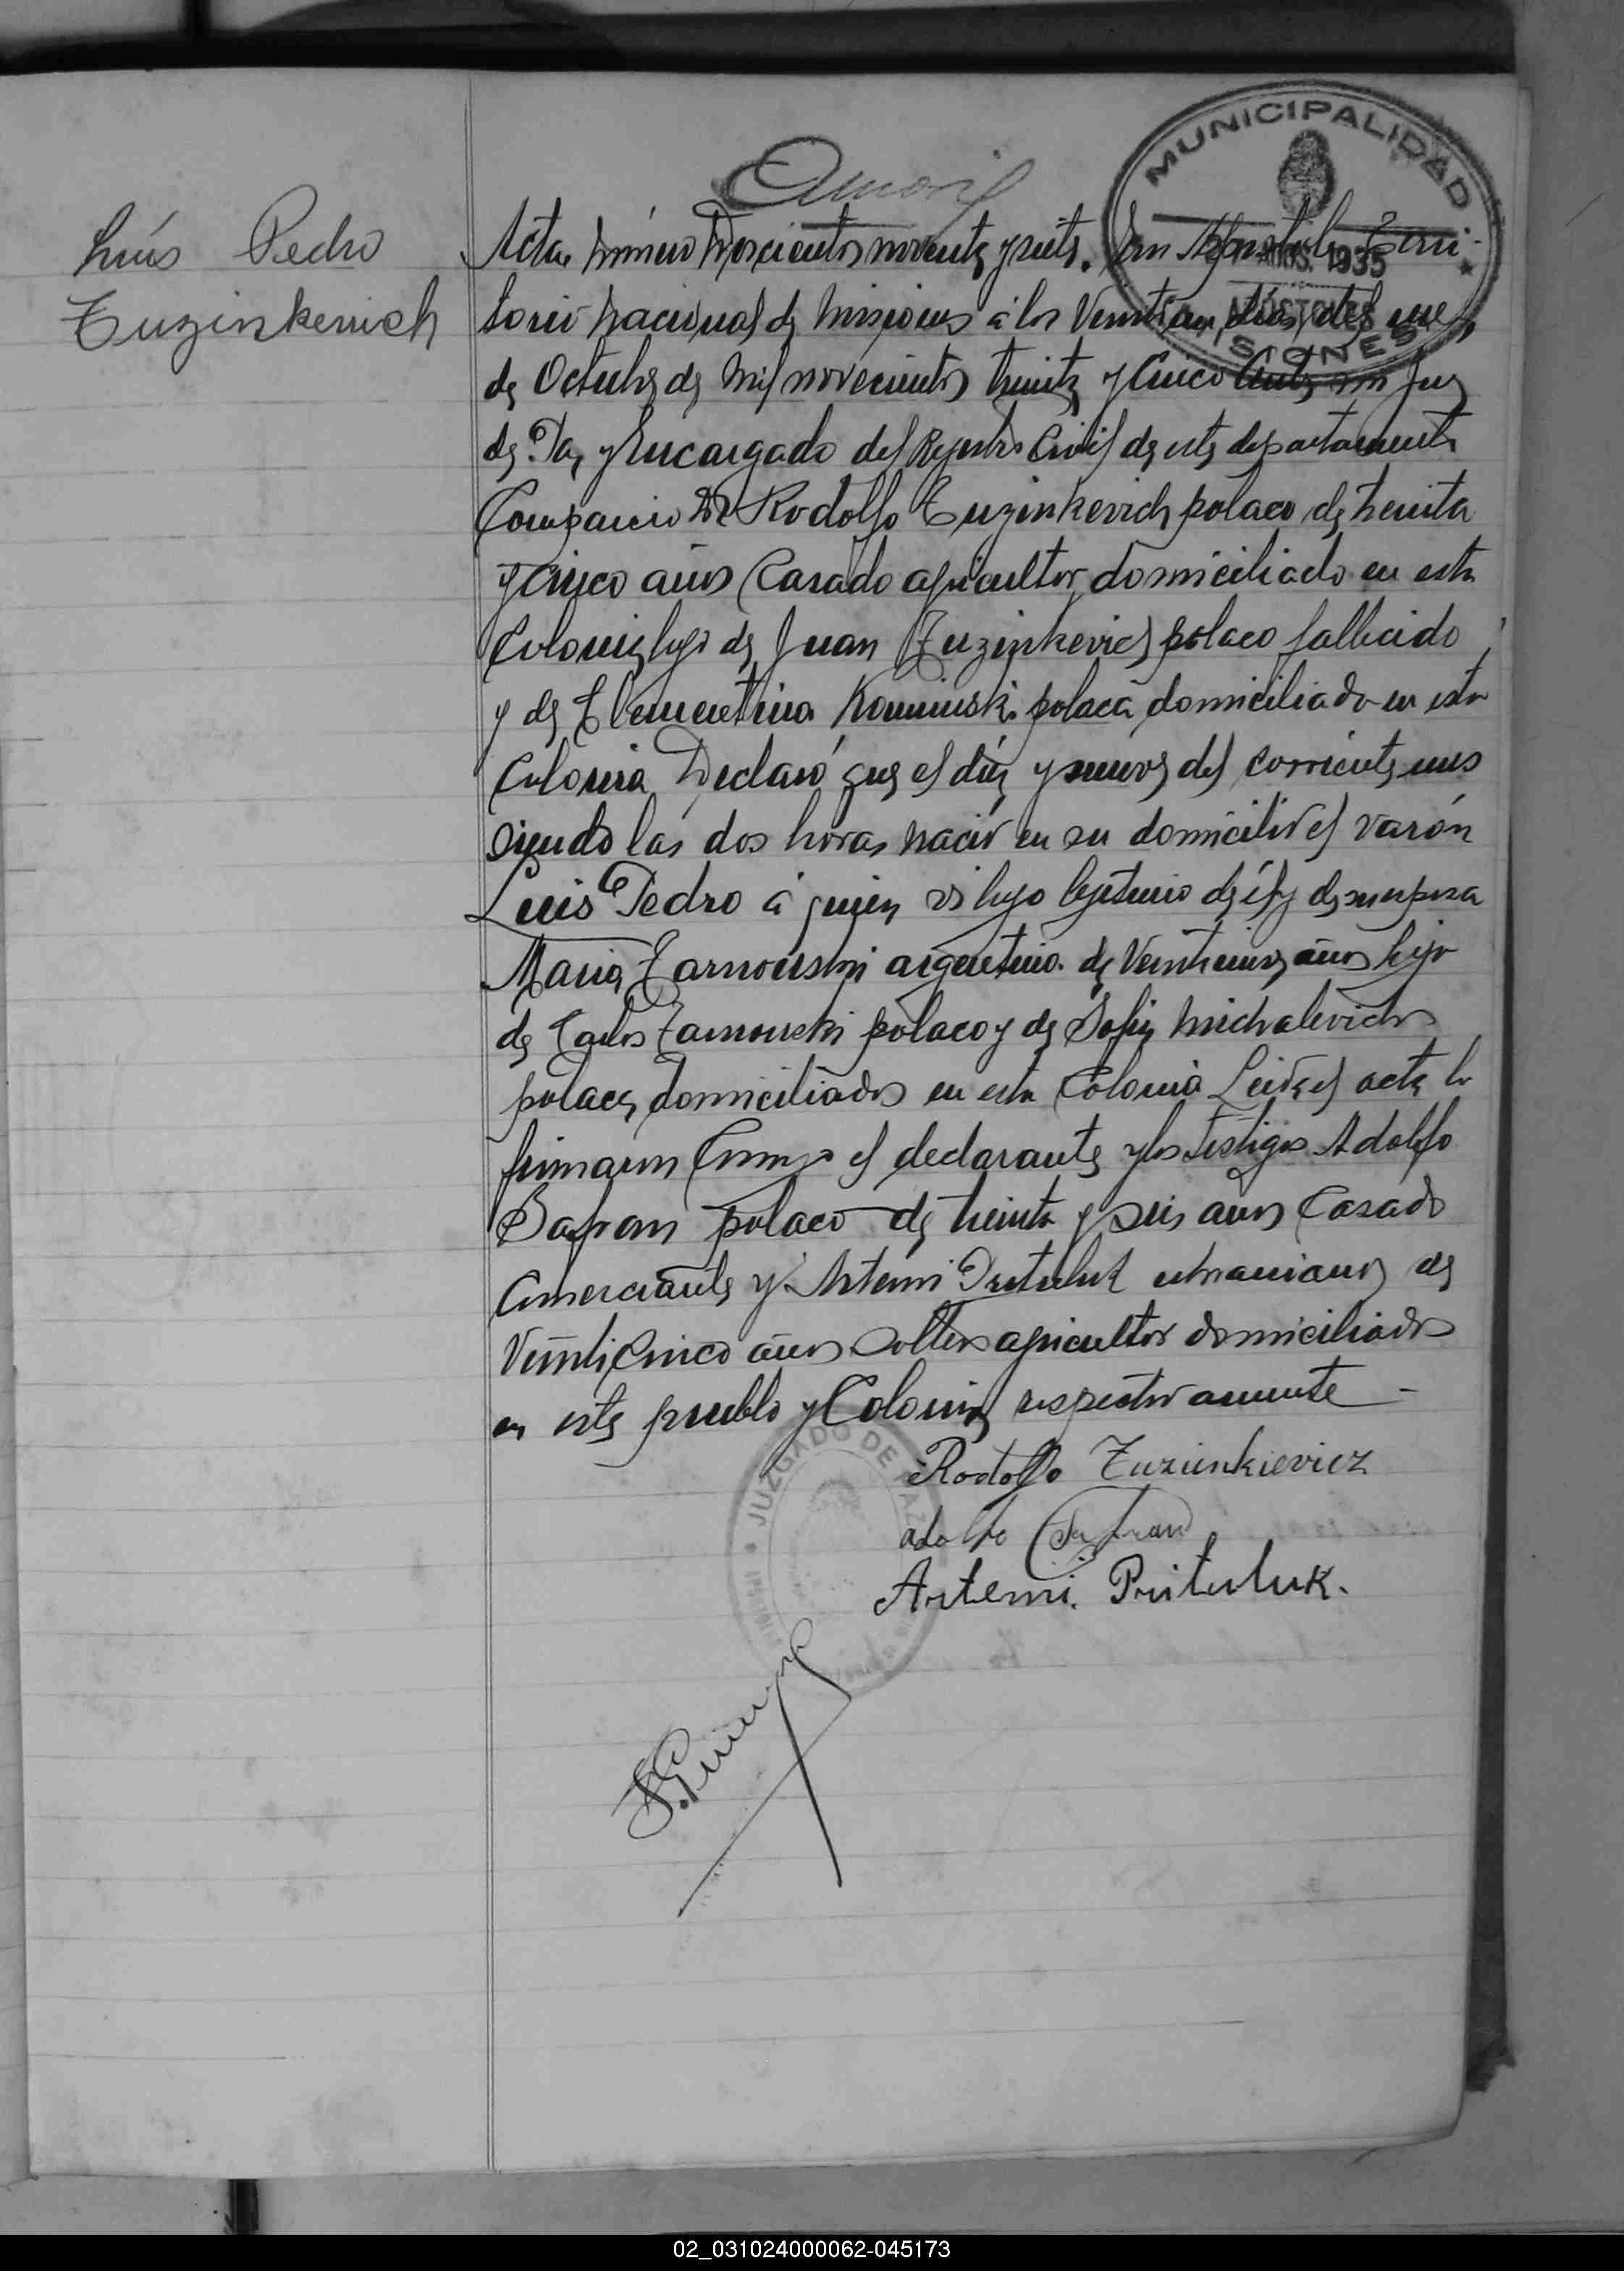 MUNICIPALIDAD
1935
APOSTOLES
MISIONES
Luis Pedro
Tuzinkevich
Acta número Doscientos noventa y siete. En Apostoles Terri-
torio Nacional de Misiones á los Veintiun dias del mes
de Octubre de Mil novecientos treinta y Cinco Ante mi Juez
de Paz y Encargado del Registro Civil de este departamento
Compareció Dn Rodolfo Tuzinkevich polaco de treinta
y Cinco años Casado agricultor domiciliado en esta
Colonia hijo de Juan Tuzinkevich polaco fallecido
y de Clementina Kominski polaca domiciliada en esta
Colonia Declaró que el diez y nueve del corriente mes
siendo las dos horas nació en su domicilio el varón
Luis Pedro á quien es hijo lejitimo de él y de su esposa
Maria Zarnouski argentina de Veintinueve años hija
de Carlos Zarnouski polaco y de Sofia Michalevichs
polaca domiciliados en esta Colonia Leida el acta la
firmaron Conmigo el declarante y los testigos Adolfo
Bafron polaco de treinta y seis años Casado
Comerciante y Artemi Prituluk ukraniano de
Veinticinco años soltero agricultor domiciliados
en este pueblo y Colonia respectivamente -
Rodolfo Tuzinkieviez
Adolfo
Artemi. Prituluk.
JUZGADO DE PAZ
02_031024000062-045173